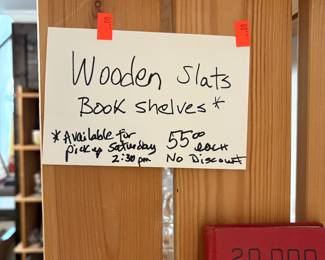 Wooden Slats
Book Shelves*
*Available for
pickup Saturday
2:30 pm
55⁰⁰
each
No Discount
20,000